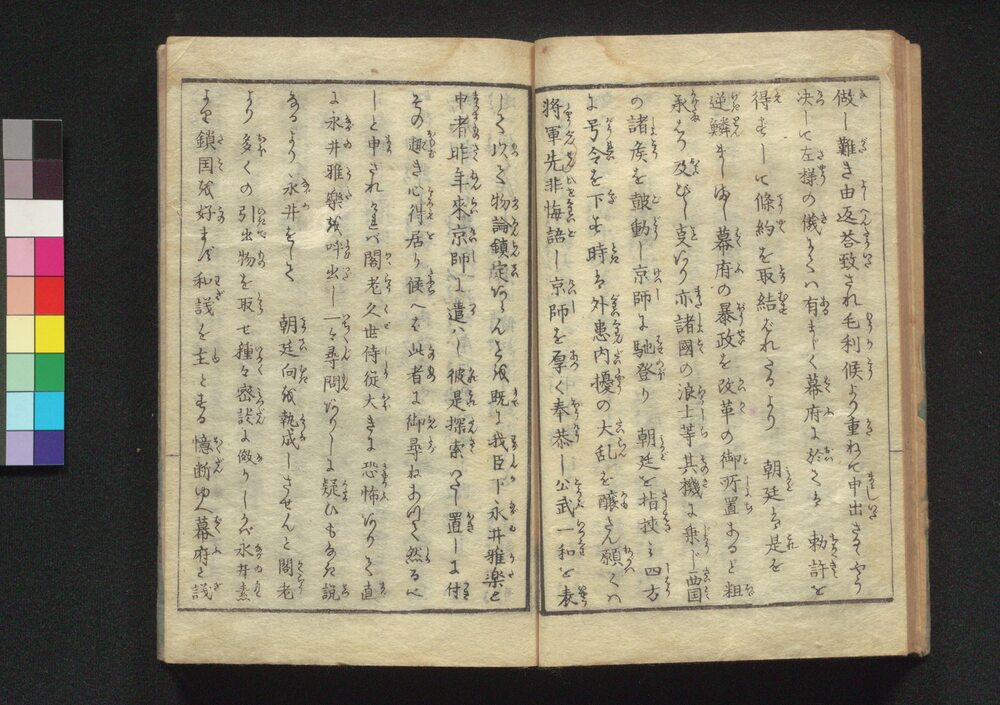 做し難き由返答致され毛利候より重ねて申出さるゝやう
决して左様の儀は有まじく幕府に於ては 勅許を
得ずして條約を取結ばれたるより 朝廷には是を
逆鱗ましまし幕府の暴政を改革の御所置あると粗
承はり及びし更に亦諸國の浪士等其機に乗じ西国
の諸矦を皷動し京師に馳登り 朝廷を指挾み四方
に号令を下さん時は外患内擾の大乱を醸さん願くは
将軍先非悔語し京師を厚く奉恭し公武一和を表
して 物論鎮定 既に我臣下永井雅楽と
申者昨年来京師に遣はし彼是探索いたし置しに付
其の趣き心得居り候へば此者に御尋ねあつて然るべ
しと申されければ閣老久世侍従大きに恐怖ありて直
に永井雅樂を呼出し一々尋問ありしに疑ひもなき説
なるより永井をして 朝廷向を執成しさせんと閣老
より多くの引出物を取せ種々密談に及びしかば永井素
より鎖国を好まず和議を主とする憶断ゆへ幕府と議